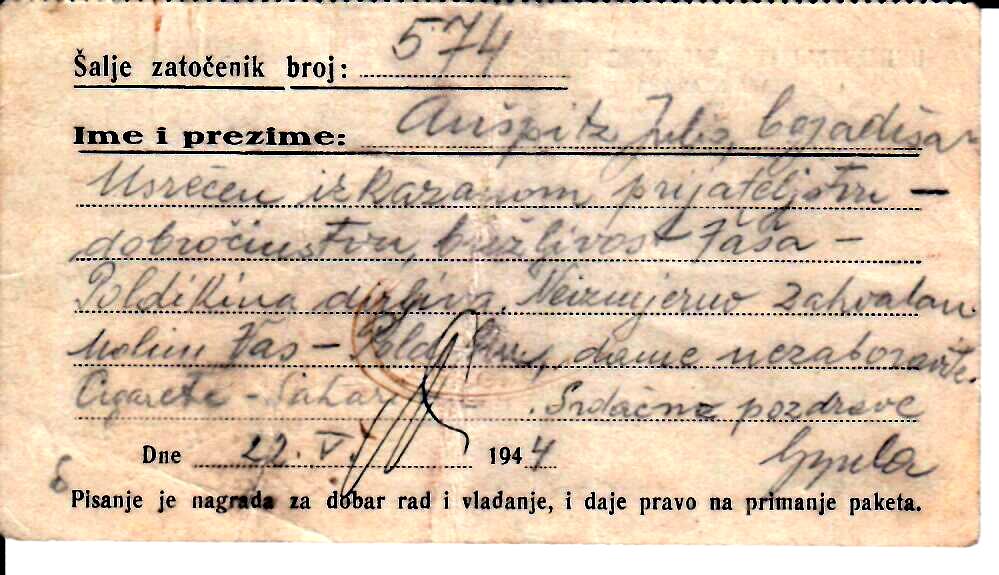 Šalje zatočenik broj: 574
Ime i prezime: Aušpitz Julio, bojadisar
Usrećen iskazanom prijateljstvu –
dobročinstvu, brižlivost Vaša –
Poldikina dirljiva. Neizmjerno zahvalan
molim Vas – da me nezaboravite.
Cigarete – Srdačne pozdrave
Dne 22. V. 1944 Gyula
Pisanje je nagrada za dobar rad i vladanje, i daje pravo na primanje paketa.